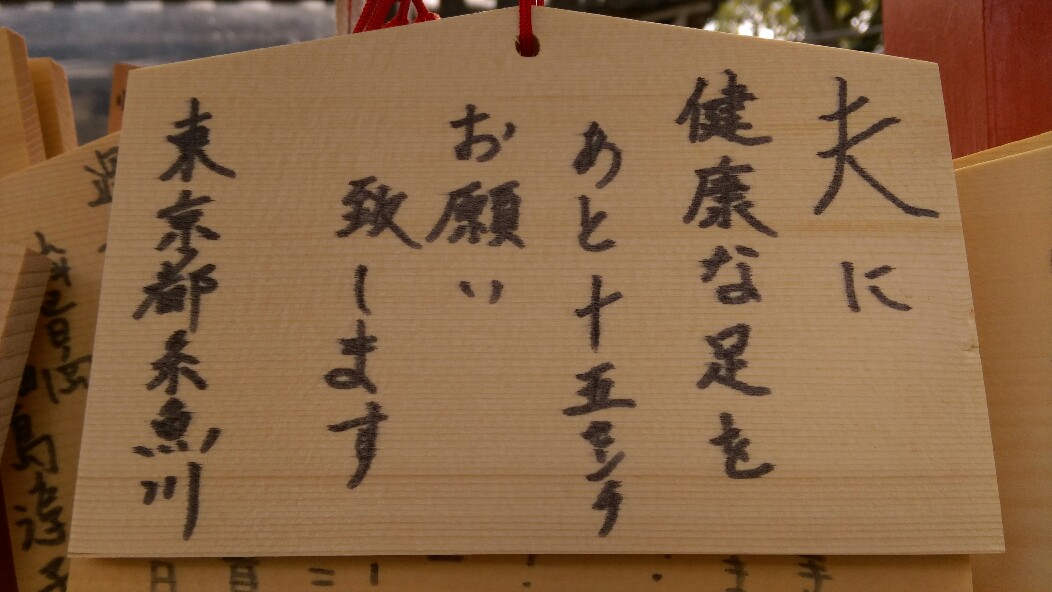 夫に
健康な足を
あと十五センチ
お願い
致します
東京都糸魚川